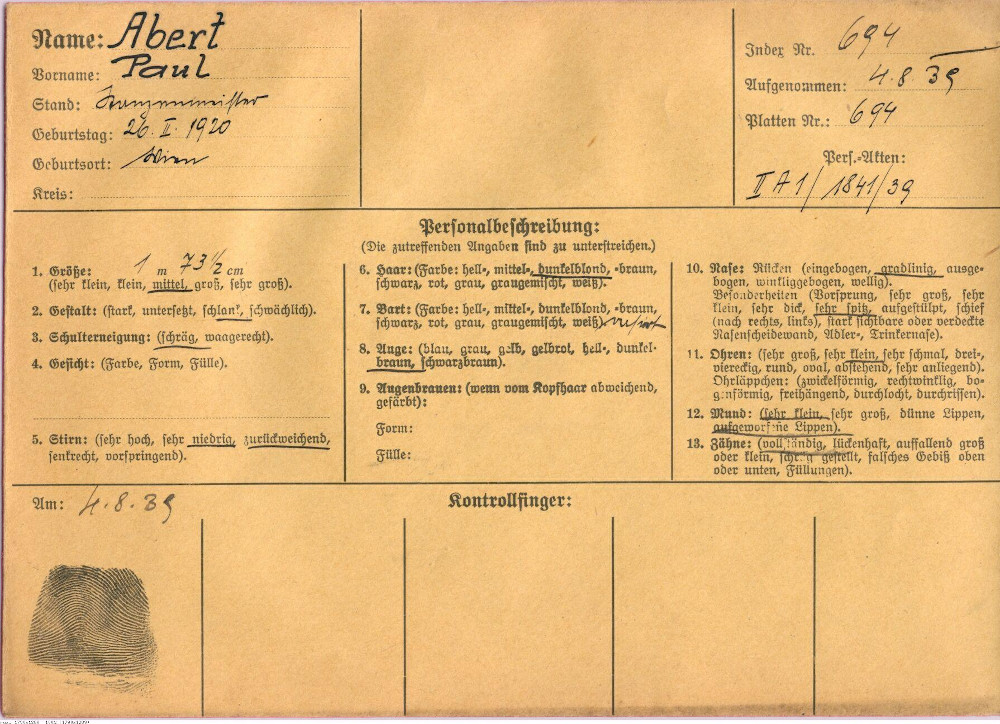 Name: Abert
Vorname: Paul
Stand:
Geburtstag: 26. II. 1920
Geburtsort: Wien
Kreis:
Index Nr. 694
Aufgenommen: 4.8.39
Platten Nr.: 694
Pers.-Akten:
II A 1/1841/39
Personalbeschreibung:
(Die zutreffenden Angaben sind zu unterstreichen.)
1. Größe: 1 m 73 1/2 cm
(sehr klein, klein, mittel, groß, sehr groß).
2. Gestalt: (stark, untersetzt, schlank, schwächlich).
3. Schulterneigung: (schräg, waagerecht).
4. Gesicht: (Farbe, Form, Fülle).
5. Stirn: (sehr hoch, sehr niedrig, zurückweichend,
senkrecht, vorspringend).
6. Haar: (Farbe: hell-, mittel-, dunkelblond, -braun,
schwarz, rot, grau, graugemischt, weiß).
7. Bart: (Farbe: hell-, mittel- dunkelblond, -braun,
schwarz, rot, grau, graugemischt, weiß) rasiert
8. Auge: (blau, grau, gelb, gelbrot, hell-, dunkel-
braun, schwarzbraun).
9. Augenbrauen: (wenn vom Kopfhaar abweichend,
gefärbt):
Form:
Fülle:
10. Nase: Rücken (eingebogen, gradlinig, ausge-
bogen, winkliggebogen, wellig).
Besonderheiten (Vorsprung, sehr groß, sehr
klein, sehr dick, sehr spitz, aufgestülpt, schief
(nach rechts, links), stark sichtbare oder verdeckte
Nasenscheidewand, Adler-, Trinkernase).
11. Ohren: (sehr groß, sehr klein, sehr schmal, drei-,
viereckig, rund, oval, abstehend, sehr anliegend).
Ohrläppchen: (zwickelförmig, rechtwinklig, bo-
genförmig, freihängend, durchlocht, durchrissen).
12. Mund: (sehr klein, sehr groß, dünne Lippen,
aufgeworfene Lippen).
13. Zähne: (vollständig, lückenhaft, auffallend groß
oder klein, schräg gestellt, falsches Gebiß oben
oder unten, Füllungen).
Am: 4.8.39
Kontrollfinger: